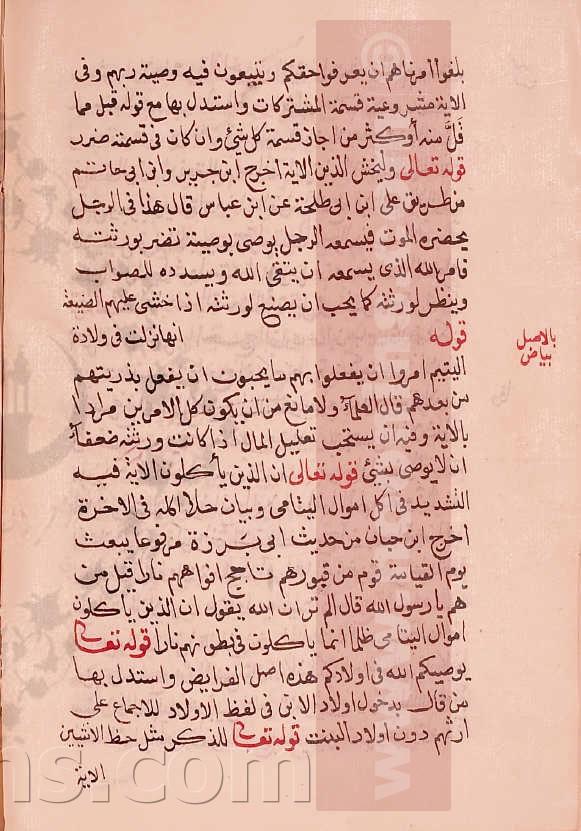 بلغوا امرناهم ان يعرفوا حقكم ويتبعون فيه وصية ربهم وفى
الاية مشروعية قسمة المشتركات واستدل بها مع قوله قبل مما
قَلَّ منه أوكثر من اجاز قسمة كل شئ وان كان فى قسمته ضرر
قوله تعالى وليخش الذين الاية اخرج ابن جرير وابن ابى حاتم
من طريق على ابن ابى طلحة عن ابن عباس قال هذا فى الرجل
يحضره الموت فيسمعه الرجل يوصى بوصية تضر بورثته
فامر الله الذى يسمعه ان يتقى الله ويسدده للصواب
وينظر لورثته كما يحب ان يصنع لورثته اذا خشى عليهم الضيعة
قوله انها نزلت فى ولادة
بالاصل
بياض
اليتيم امروا ان يفعلوا بهم ما يحبون ان يفعل بذريتهم
من بعدهم قال العلمآء ولا مانع من ان يكون كل الامرين مرادا
بالاية وفيه ان يستحب تقليل المال اذا كانت ورثته ضعفآء
ان لا يوصى بشئ قوله تعالى ان الذين ياكلون الاية فيه
التشديد فى اكل اموال اليتامى وبيان حال اكله فى الاخرة
اخرج ابن حبان من حديث ابى بَرزة مرفوعا يبعث
يوم القيامة قوم من قبورهم تاجج افواههم نارا قيل من
هم يا رسول الله قال الم تر ان الله يقول ان الذين ياكلون
اموال اليتامى ظلما انما ياكلون فى بطونهم نارا قوله تعالى
يوصيكم الله فى اولادكم هذه اصل الفرايض واستدل بها
من قال بدخول اولاد الابن فى لفظ الاولاد للاجماع على
ارثهم دون اولاد البنت قوله تعالى للذكر مثل حظ الانثيين
الاية
ns.com